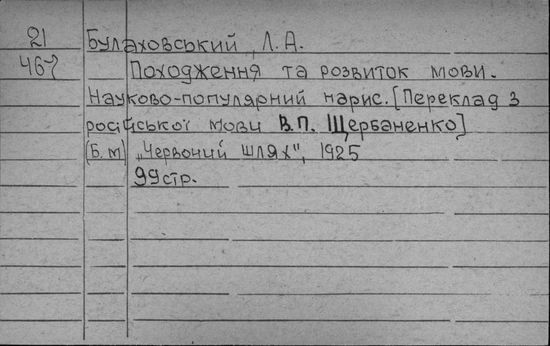 21 Булаховський, Л. А.
467 Походження та розвиток мови.
Науково-популярний нарис. [Переклад з
російської мови В.П. Щербаненко]
(Б.м) „Червоний шлях", 1925
99 стр.